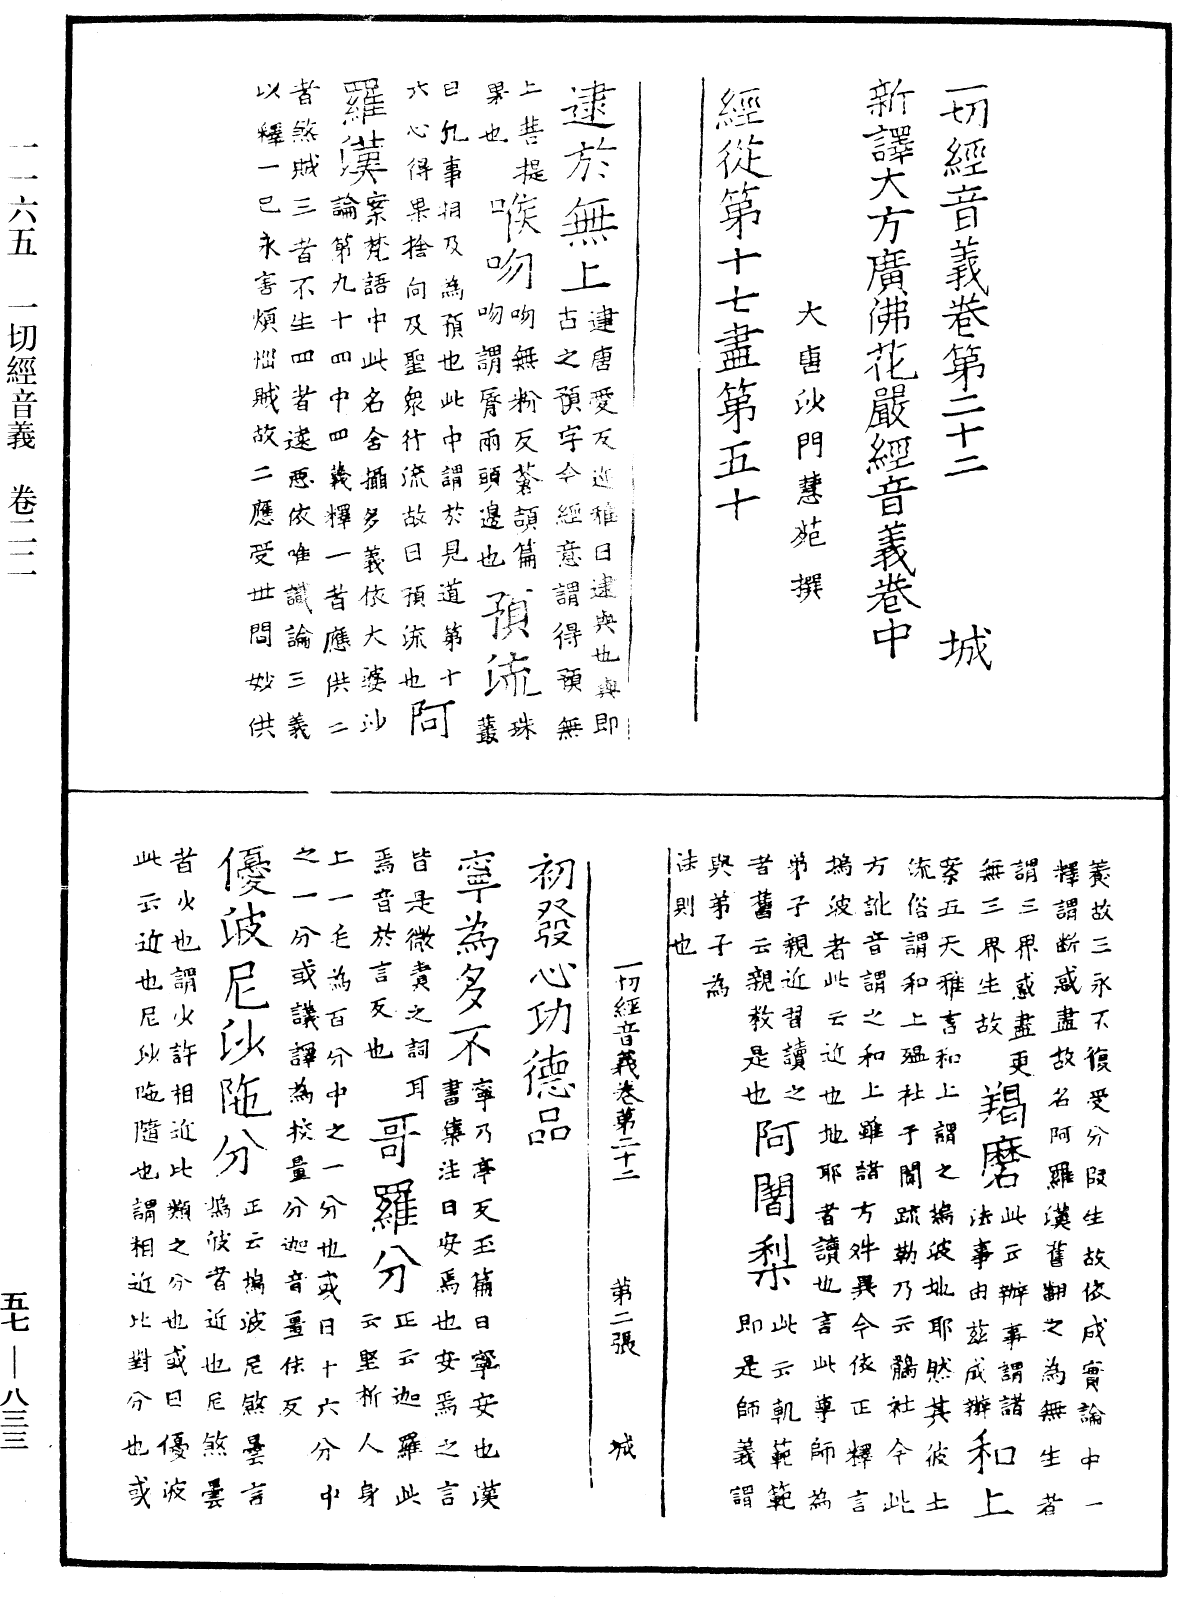 一切經音義卷第二十二　城
新譯大方廣佛花嚴經音義卷中
大唐沙門慧苑撰
經從第十七盡第五十
逮於無上
逮唐愛反迩雅曰逮與也與即
古之預字今經意謂得預無
上菩提
果也
喉吻
吻無粉反蒼頡篇
吻謂脣兩頭邊也
預流
珠叢
曰凡事相及為預也此中謂於見道第十
六心得果捨向及聖眾行流故曰預流也
阿羅漢
案梵語中此名含攝多義依大婆沙
論第九十四中四義釋一者應供二
者煞賊三者不生四者遠惡依唯識論三義
以釋一已永害煩惱賊故二應受世間妙供
養故三永不復受分段生故依成實論中一
釋謂斷惑盡故名阿羅漢舊翻之為無生者
謂三界惑盡更
無三界生故
羯磨
此云辦事謂諸
法事由茲成辦
和上
案五天雅言和上謂之塢波地耶然其彼土
流俗謂和上殟社于闐疏勒乃云鶻社今此
方訛音謂之和上雖諸方舛異今依正釋言
塢波者此云近也地耶者讀也言此尊師為
弟子親近習讀之
者舊云親教是也
阿闍梨
此云軌範範
即是師義謂
與弟子為
法則也
一切經音義卷第二十二　第二張　城
初發心功德品
寧為多不
寧乃亭反玉篇曰寧安也漢
書集注曰安焉也安焉之言
皆是微責之詞耳
焉音於言反也
哥羅分
正云迦羅此
云堅析人身
上一毛為百分中之一分也或曰十六分中
之一分或議譯為挍量分迦音畺佉反
優波尼沙陁分
正云塢波尼煞曇言
塢波者近也尼煞曇
者火也謂火許相近比類之分也或曰優波
此云近也尼沙陁隨也謂相近比對分也或
一一六五　一切經音義　卷二二
五七—八三三